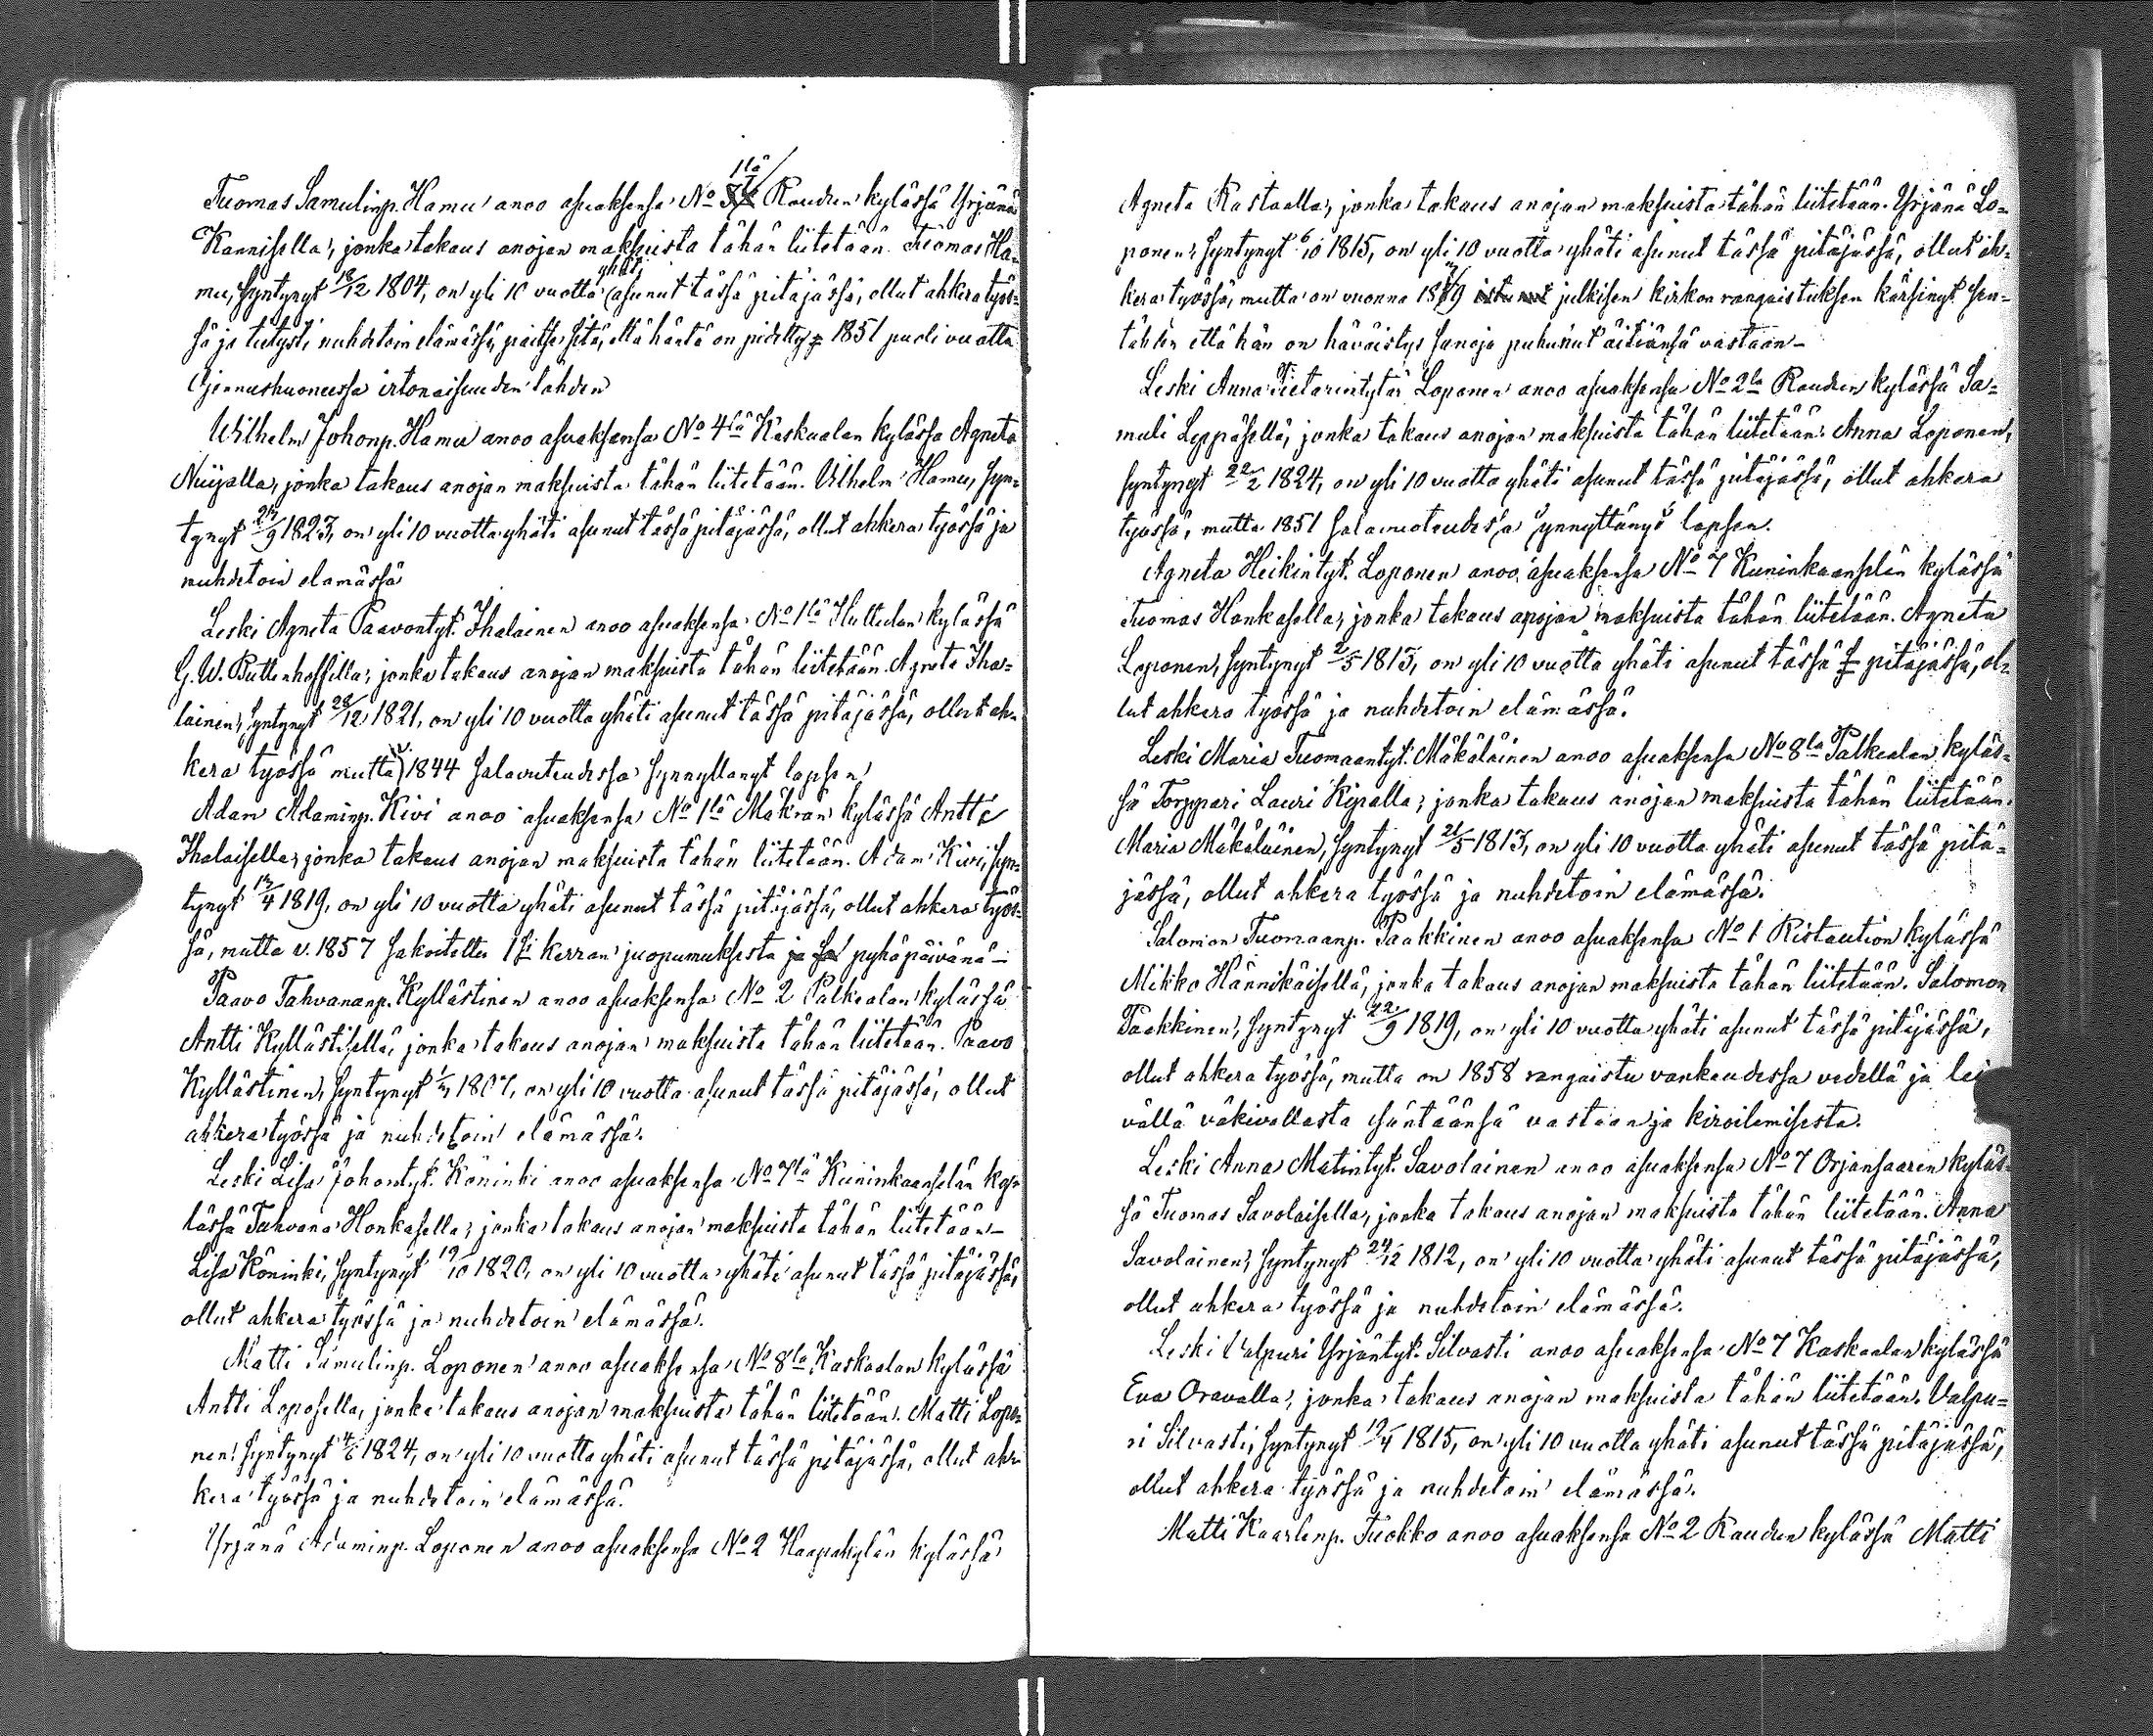 1lä
Tuomas Samulinp. Hamu anoo asuaksensa No Raudun kylässä Yrjänä
Kannisella, jonka takaus anojan maksuista tähän liitetään. Tuomas Ha-
yhäti
mu, syntynyt 18/12 1804, on yli 10 vuotta asunut tässä pitäjässä, ollut ahkera työs-
sä ja tietysti nuhdetoin elämässä, paitse sitä, että häntä on pidetty 1851 puoli vuotta
Ojennushuoneessa irtonaisuuden tähden
Wilhelm Johonp. Hamu anoo asuaksensa No 4lä Kaskaalan kylässä Agneta
Nuijalla, jonka takaus anojan maksuista tähän liitetään. Vilhelm Hamu, syn-
tynyt 23/9 1823, on yli 10 vuotta yhäti asunut tässä pitäjässä, ollut ahkera työssä ja
nuhdetoin elämässä
Leski Agneta Paavontyt. Ihalainen anoo asuaksensa No 1lä Huttulan kylässä
G. W. Buttenhoffilla, jonka takaus anojan maksuista tähän liitetään. Agneta Iha-
lainen, syntynyt 28/12 1821, on yli 10 vuotta yhäti asunut tässä pitäjässä, ollut ah-
kera työssä mutta v. 1844 salavuteudessa synnyttänyt lapsen
Adam Adaminp. Kivi anoo asuaksensa No 1lä Mäkrän kylässä Antti
Ihalaisella, jonka takaus anojan maksuista tähän liitetään. Adam Kivi, syn-
tynyt 13/4 1819, on yli 10 vuotta yhäti asunut tässä pitäjässä, ollut ahkera työs-
sä, mutta v. 1857 sakoitettu 1si kerran juopumuksesta ja pyhäpäivänä-
Paavo Tahvananp. Kyllästinen anoo asuaksensa No 2 Palkealan kylässä
Antti Kyllästisellä, jonka takaus anojan maksuista tähän liitetään. Paavo
Kyllästinen, syntynyt 1807, on yli 10 vuotta asunut tässä pitäjässä, ollut
ahkera työssä ja nuhdetoin elämässä.
Leski Lisa Johontyt. Köninki anoo asuaksensa No 7lä Kuninkaanselän ky-
lässä Tahvana Honkasella, jonka takaus anojan maksuista tähän liitetään-
Lisa Köninki, syntynyt 19/10 1820, on yli 10 vuotta yhäti asunut tässä pitäjässä,
ollut ahkera työssä ja nuhdetoin elämässä.
Matti Samulinp. Loponen anoo asuaksensa No 8la Kaskaalan kylässä
Antti Loposella, jonka takaus anojan maksuista tähän liitetään. Matti Lopo-
nen, syntynyt 4/6 1824, on yli 10 vuotta yhäti asunut tässä pitäjässä, ollut ah-
kera työssä ja nuhdetoin elämässä.
Yrjänä Adaminp. Loponen anoo asuaksensa No 2 Haapakylän kylässä
Agneta Rastaalla, jonka takaus anojan maksuista tähän liitetään. Yrjänä Lo-
ponen, syntynyt 6/10 1815, on yli 10 vuotta yhäti asunut tässä pitäjässä, ollut ah-
kera työssä, mutta on vuonna istunut julkisen kirkon rangaistuksen kärsinyt sen-
tähden että hän on häväistys sanoja puhunut äitiänsä vastaan-
Leski Anna Pietarintytär Loponen anoo asuaksensa No 2la Raudun kylässä Sa-
muli Leppäsellä, jonka takaus anojan maksuista tähän liitetään. Anna Loponen,
syntynyt 22/2 1824, on yli 10 vuotta yhäti asunut tässä pitäjässä, ollut ahkera
työssä, mutta 1851 salavuoteudessa synnyttänyt lapsen.
Agneta Heikintyt. Loponen anoo asuaksensa No 7 Kuninkaanselän kylässä
Tuomas Honkasella, jonka takaus anojan maksuista tähän liitetään. Agneta
Loponen, syntynyt 2/5 1813, on yli 10 vuotta yhäti asunut tässä pitäjässä, ol-
lut ahkera työssä ja nuhdetoin elämässä.
Leski Maria Tuomaantyt. Mäkäläinen anoo asuaksensa No 8la Palkealan kyläs-
sä Torppari Lauri Kipalla, jonka takaus anojan maksuista tähän liitetään.
Maria Mäkäläinen, syntynyt 21/5 1813, on yli 10 vuotta yhäti asunut tässä pitä-
jässä, ollut ahkera työssä ja nuhdetoin elämässä.
Salomon Tuomaanp. Paakkinen anoo asuaksensa No 1 Ristaution kylässä
Mikko Hännikäisellä, jonka takaus anojan maksuista tähän liitetään. Salomon
Paakkinen, syntynyt 22/9 1819, on yli 10 vuotta yhäti asunut tässä pitäjässä,
ollut ahkera työssä, mutta on 1858 rangaistu vankeudessa vedellä ja lei
vällä väkivallasta isäntäänsä vastaan ja kiroilemisesta.
Leski Anna Matintyt. Savolainen anoo asuaksensa No 7 Orjansaaren kyläs-
sä Tuomas Savolaisella, jonka takaus anojan maksuista tähän liitetään. Anna
Savolainen, syntynyt 24/12 1812, on yli 10 vuotta yhäti asunut tässä pitäjässä,
ollut ahkera työssä ja nuhdetoin elämässä.
Leski Valpuri Yrjäntyt. Silvasti anoo asuaksensa No 7 Kaskaalan kylässä
Eva Oravalla, jonka takaus anojan maksuista tähän liitetään. Valpu-
ri Silvasti, syntynyt 19/4 1815, on yli 10 vuotta yhäti asunut tässä pitäjässä,
ollut ahkera työssä ja nuhdetoin elämässä.
Matti Kaarlenp. Tuokko anoo asuaksensa No 2 Raudun kylässä Matti